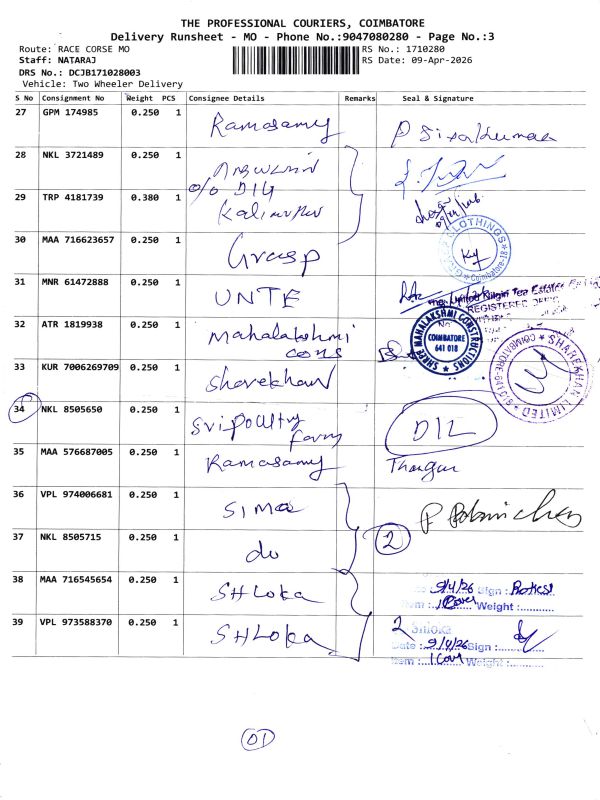 THE PROFESSIONAL COURIERS, COIMBATORE
Delivery Runsheet - MO - Phone No.:9047080280 - Page No.:3
Route: RACE CORSE MO
RS No.: 1710280
Staff: NATARAJ
RS Date: 09-Apr-2026
DRS No.: DCJB171028003
Vehicle: Two Wheeler Delivery
S No Consignment No Weight PCS Consignee Details Remarks Seal & Signature
27 GPM 174985 0.250 1 Ramasamy P Sivakumar
28 NKL 3721489 0.250 1
O/o DIG
29 TRP 4181739 0.380 1
30 MAA 716623657 0.250 1 Grasp
CLOTHINGS
Coimbatore-18
31 MNR 61472888 0.250 1 UNTE
The United Nilgiri Tea Estates
REGISTERED OFFICE
32 ATR 1819938 0.250 1 Mahalakshmi
cons
SHREE MAHALAKSHMI CONSTRUCTIONS
COIMBATORE
641 018
33 KUR 7006269709 0.250 1 Sharekhan
SHAREKHAN LIMITED
COIMBATORE-641018
34 NKL 8505650 0.250 1 Sri poultry
farm
DIL
35 MAA 576687005 0.250 1 Ramasamy
36 VPL 974006681 0.250 1 SIMA
37 NKL 8505715 0.250 1 do
2
38 MAA 716545654 0.250 1 SHLoka
9/4/26 Sign :
Item : 1 Cover Weight :
39 VPL 973588370 0.250 1 SHLoka
2 Shloka
Date : 9/4/26 Sign :
Item : 1 Cov Weight :
01